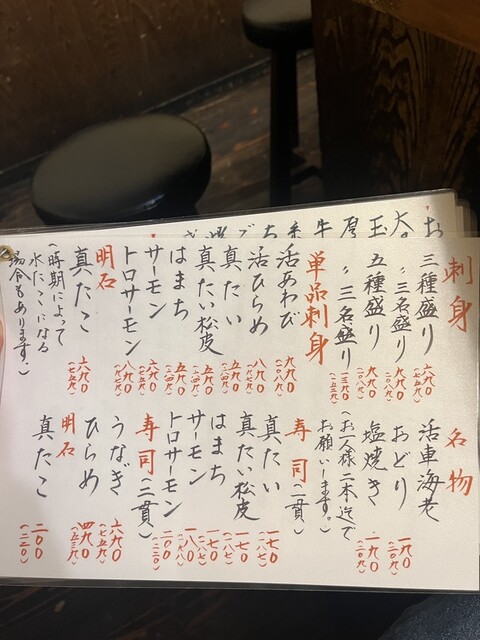 刺身
三種盛り 六九〇
(七五九)
〃三名盛り 九九〇
(一〇八九)
五種盛り 九九〇
(一〇八九)
〃三名盛り
単品刺身
活あわび 九九〇
(一〇八九)
活ひらめ 八九〇
(九七九)
真たい 五九〇
(六四九)
真たい松皮 五九〇
(六四九)
はまち 五九〇
(六四九)
サーモン 六九〇
(七五九)
トロサーモン 八九〇
(九七九)
明石
真たこ 六九〇
(七五九)
(時期によって
水だこになる
場合もあります。)
名物
活車海老
おどり 一九〇
(二〇九)
塩焼き 一九〇
(二〇九)
(お一人様一本迄で
お願いします。)
寿司(一貫)
真たい 一七〇
(一八七)
真たい松皮 一七〇
(一八七)
はまち 一七〇
(一八七)
サーモン 一八〇
トロサーモン 二〇〇
(二二〇)
寿司(二貫)
うなぎ 六九〇
(七五九)
ひらめ 四九〇
(五三九)
明石
真たこ 二〇〇
(二二〇)